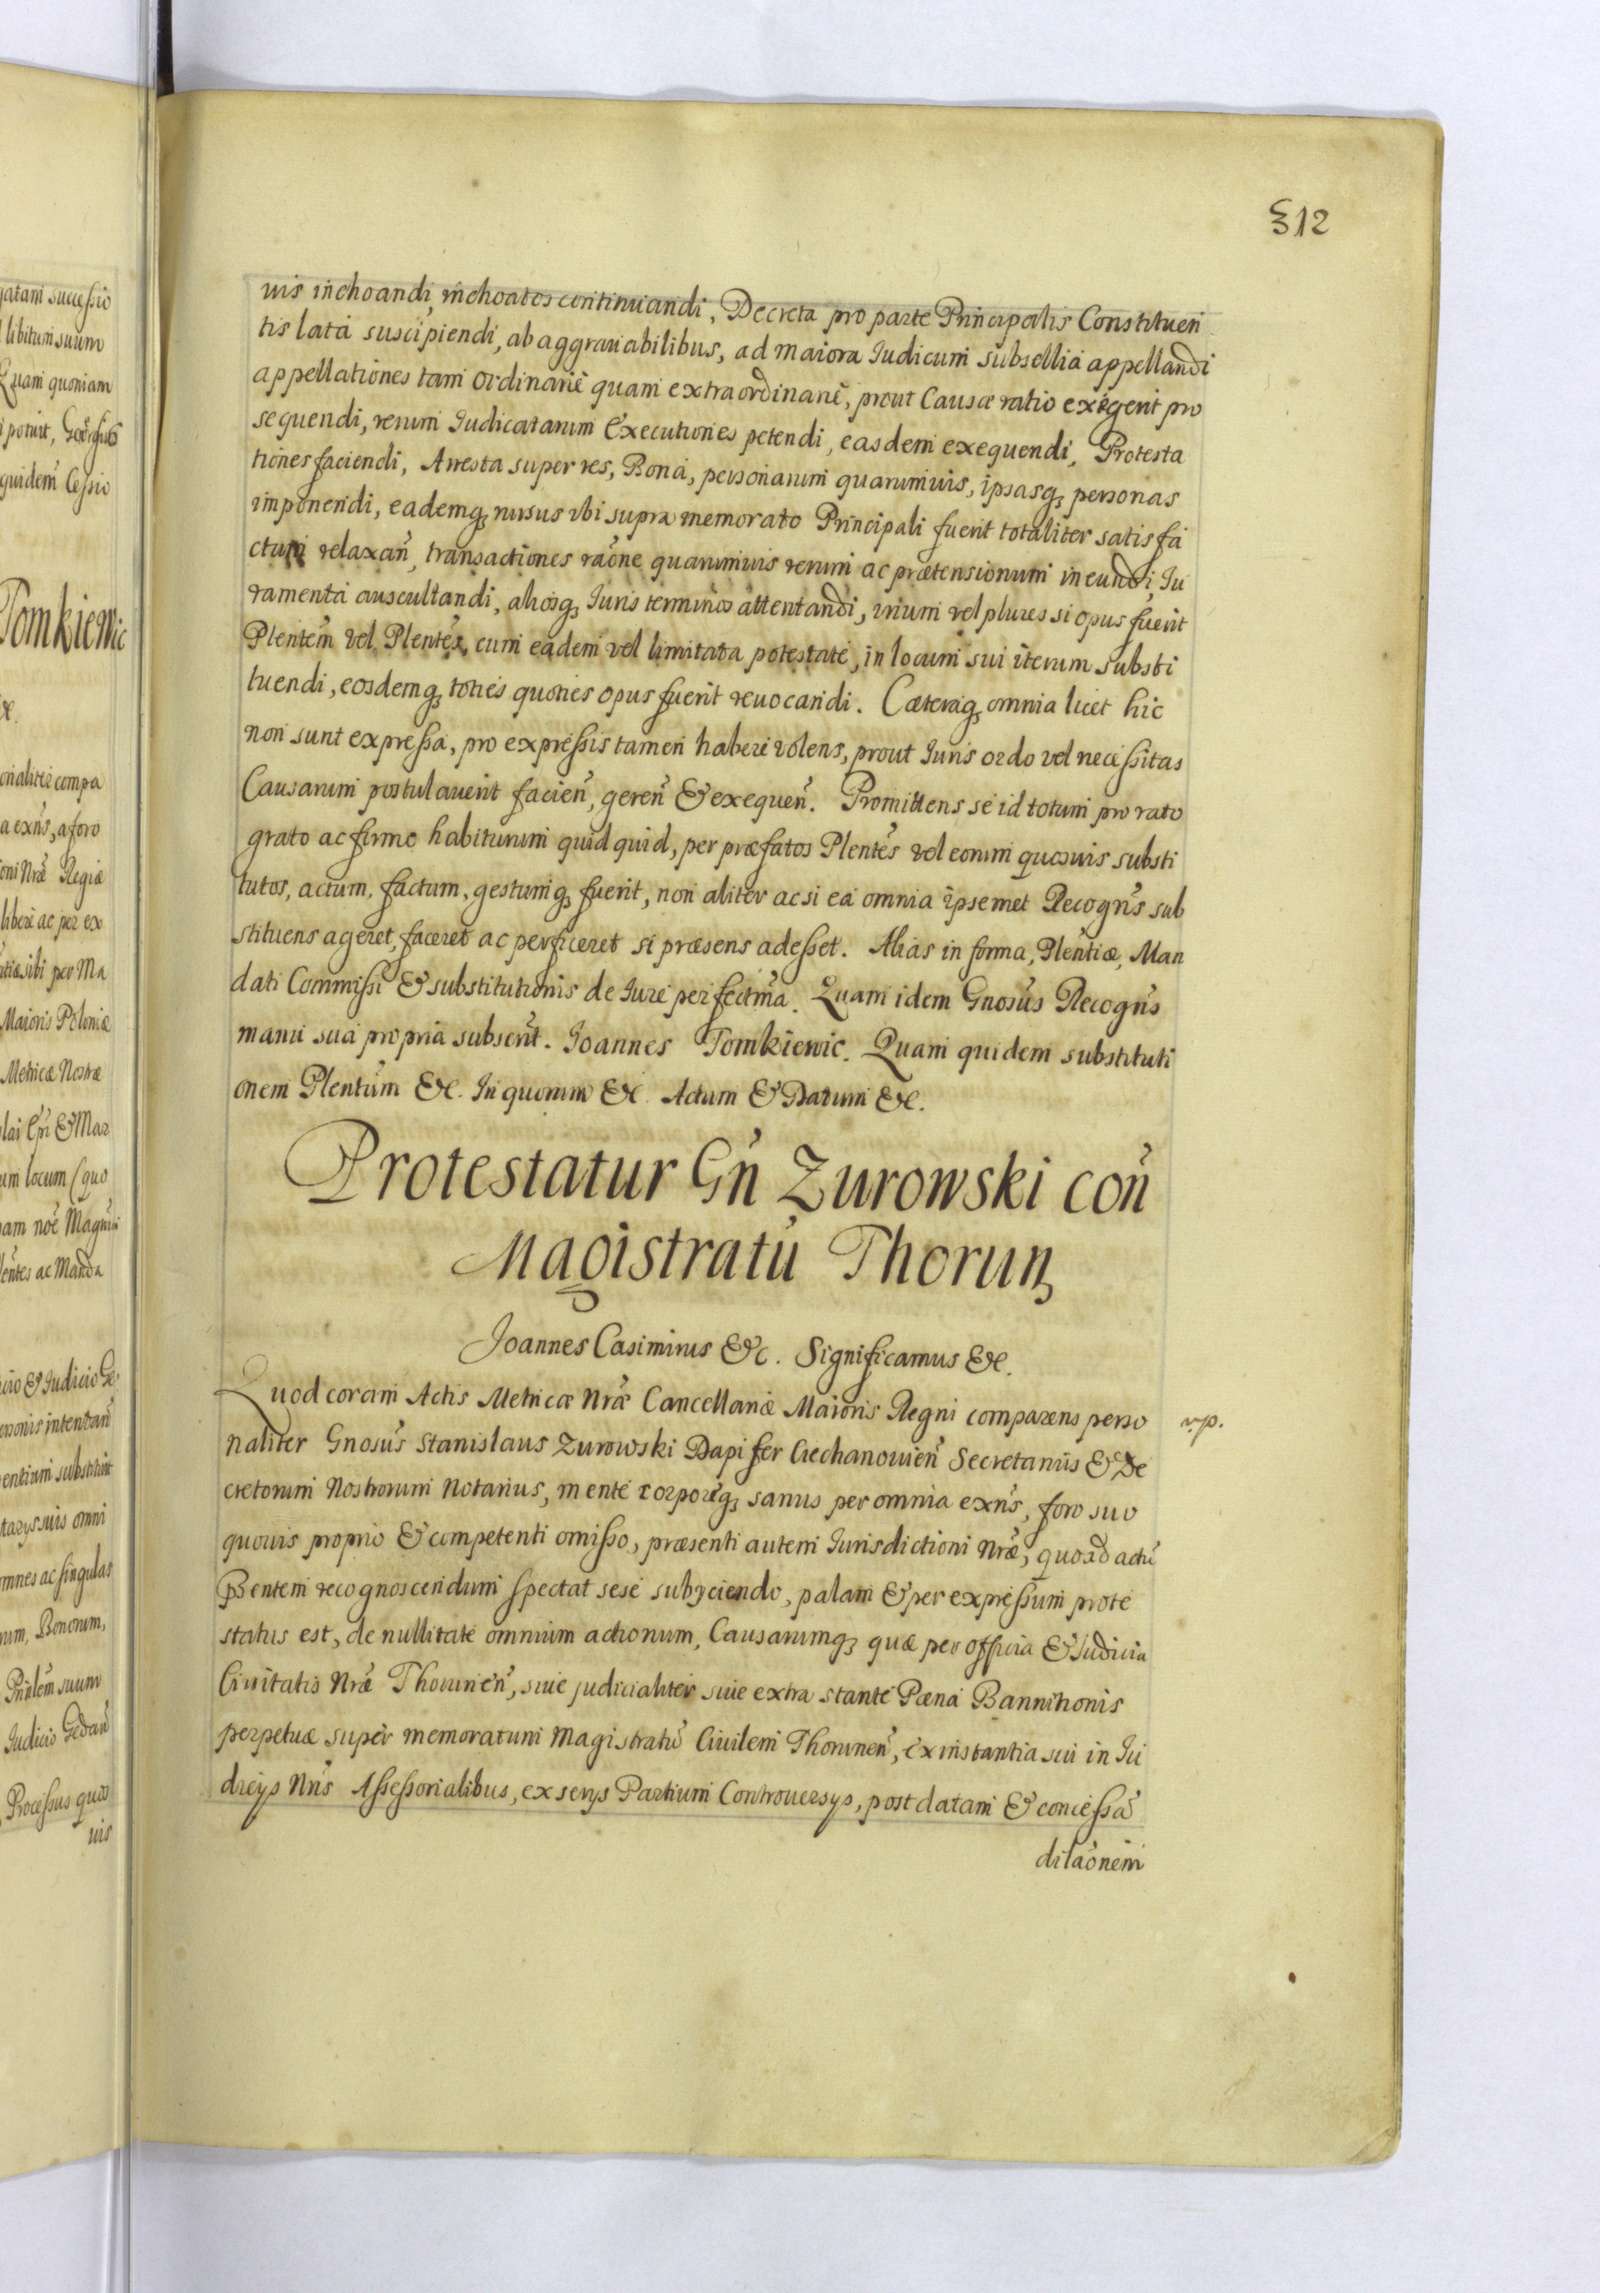 312
uis inchoandi inchoatos continuandi, Decreta pro parte Principalis Constituen
tis lata suscipiendi, ab aggrauabilibus, ad maiora Iudicum subsellia appellandi
appellationes tam ordinarie quam extraordinarie, prout Causæ ratio exigerit pro
sequendi, rerum Iudicatarum Executiones petendi, easdem exequendi, Protesta
tiones faciendi, Arresta super res, Bona, personarum quarumuis, ipsasq3 personas
imponendi, eademq3 rursus vbi supra memorato Principali fuerit totaliter satisfa
ctum relaxan̄, transactiones raōne quarumuis rerum ac prætensionum ineundi, Iu
ramenta auscultandi, aliosq3 Iuris terminos attentandi, vnum vel plures si opus fuerit
Plentem̄ vel Plentes̄, cum eadem vel limitata potestate, in locum sui iterum substi
tuendi, eosdemq3 toties quoties opus fuerit reuocandi. Cæteraq3 omnia licet hic
non sunt expressa, pro expressis tamen habere volens, prout Iuris ordo vel necessitas
Causarum postulauerit facien̄, geren̄ & exequen̄. Promittens se id totum pro rato
grato ac firmo habiturum quidquid, per præfatos Plentes̄ vel eorum quosuis substi
tutos, actum, factum, gestumq3 fuerit, non aliter ac si ea omnia ipsemet Recogn̄s sub
stituens ageret, faceret ac perficeret si præsens adesset. Alias in forma, Plentiæ, Man
dati Commissi & substitutionis de Iure perfectma. Quam idem Gnosus̄ Recogn̄s
manu sua propria subscrit̄. Ioannes Tomkiewic. Quam quidem substituti
onem Plentum̄ &c. In quorum &c. Actum & Datum &c.
Protestatur Gn̄ Zurowski con̄
Magistratū Thorun3
Joannes Casimirus &c. Significamus &c.
Quod coram Actis Metricæ Nrǣ Cancellariæ Maioris Regni comparens perso
naliter Gnosus̄ Stanislaus Zurowski Dapifer Ciechanouien̄ Secretarius & De
cretorum Nostrorum Notarius, mente corporeq3 sanus per omnia exn̄s, foro suo
quouis proprio & competenti omisso, præsenti autem Iurisdictioni Nrǣ, quoad actū
Pꝛentem recognoscendum spectat sese subyciendo, palam & per expressum prote
status est, de nullitate omnium actionum, Causarumq3 quæ per officia & Iudicia
Ciuitatis Nrǣ Thorunen̄, siue judicialiter siue extra stante Pæna Bannitionis
perpetuæ super memoratum Magistratū Ciuilem Thorunen̄, ex instantia sui in Iu
dicys Nrīs Assessorialibus, ex serys Partium Controuersys, post datam & concessā
dilaōnem